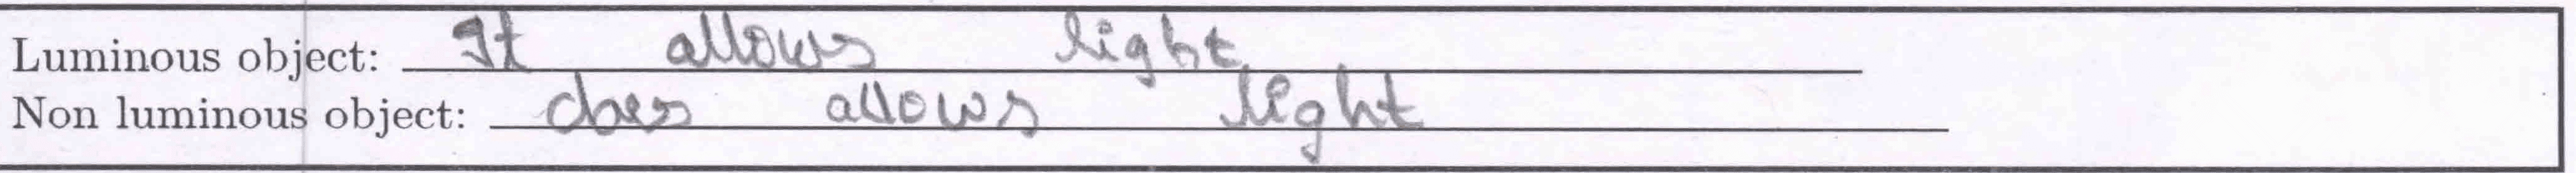 Luminous object: It allows light
Non luminous object: does allows light